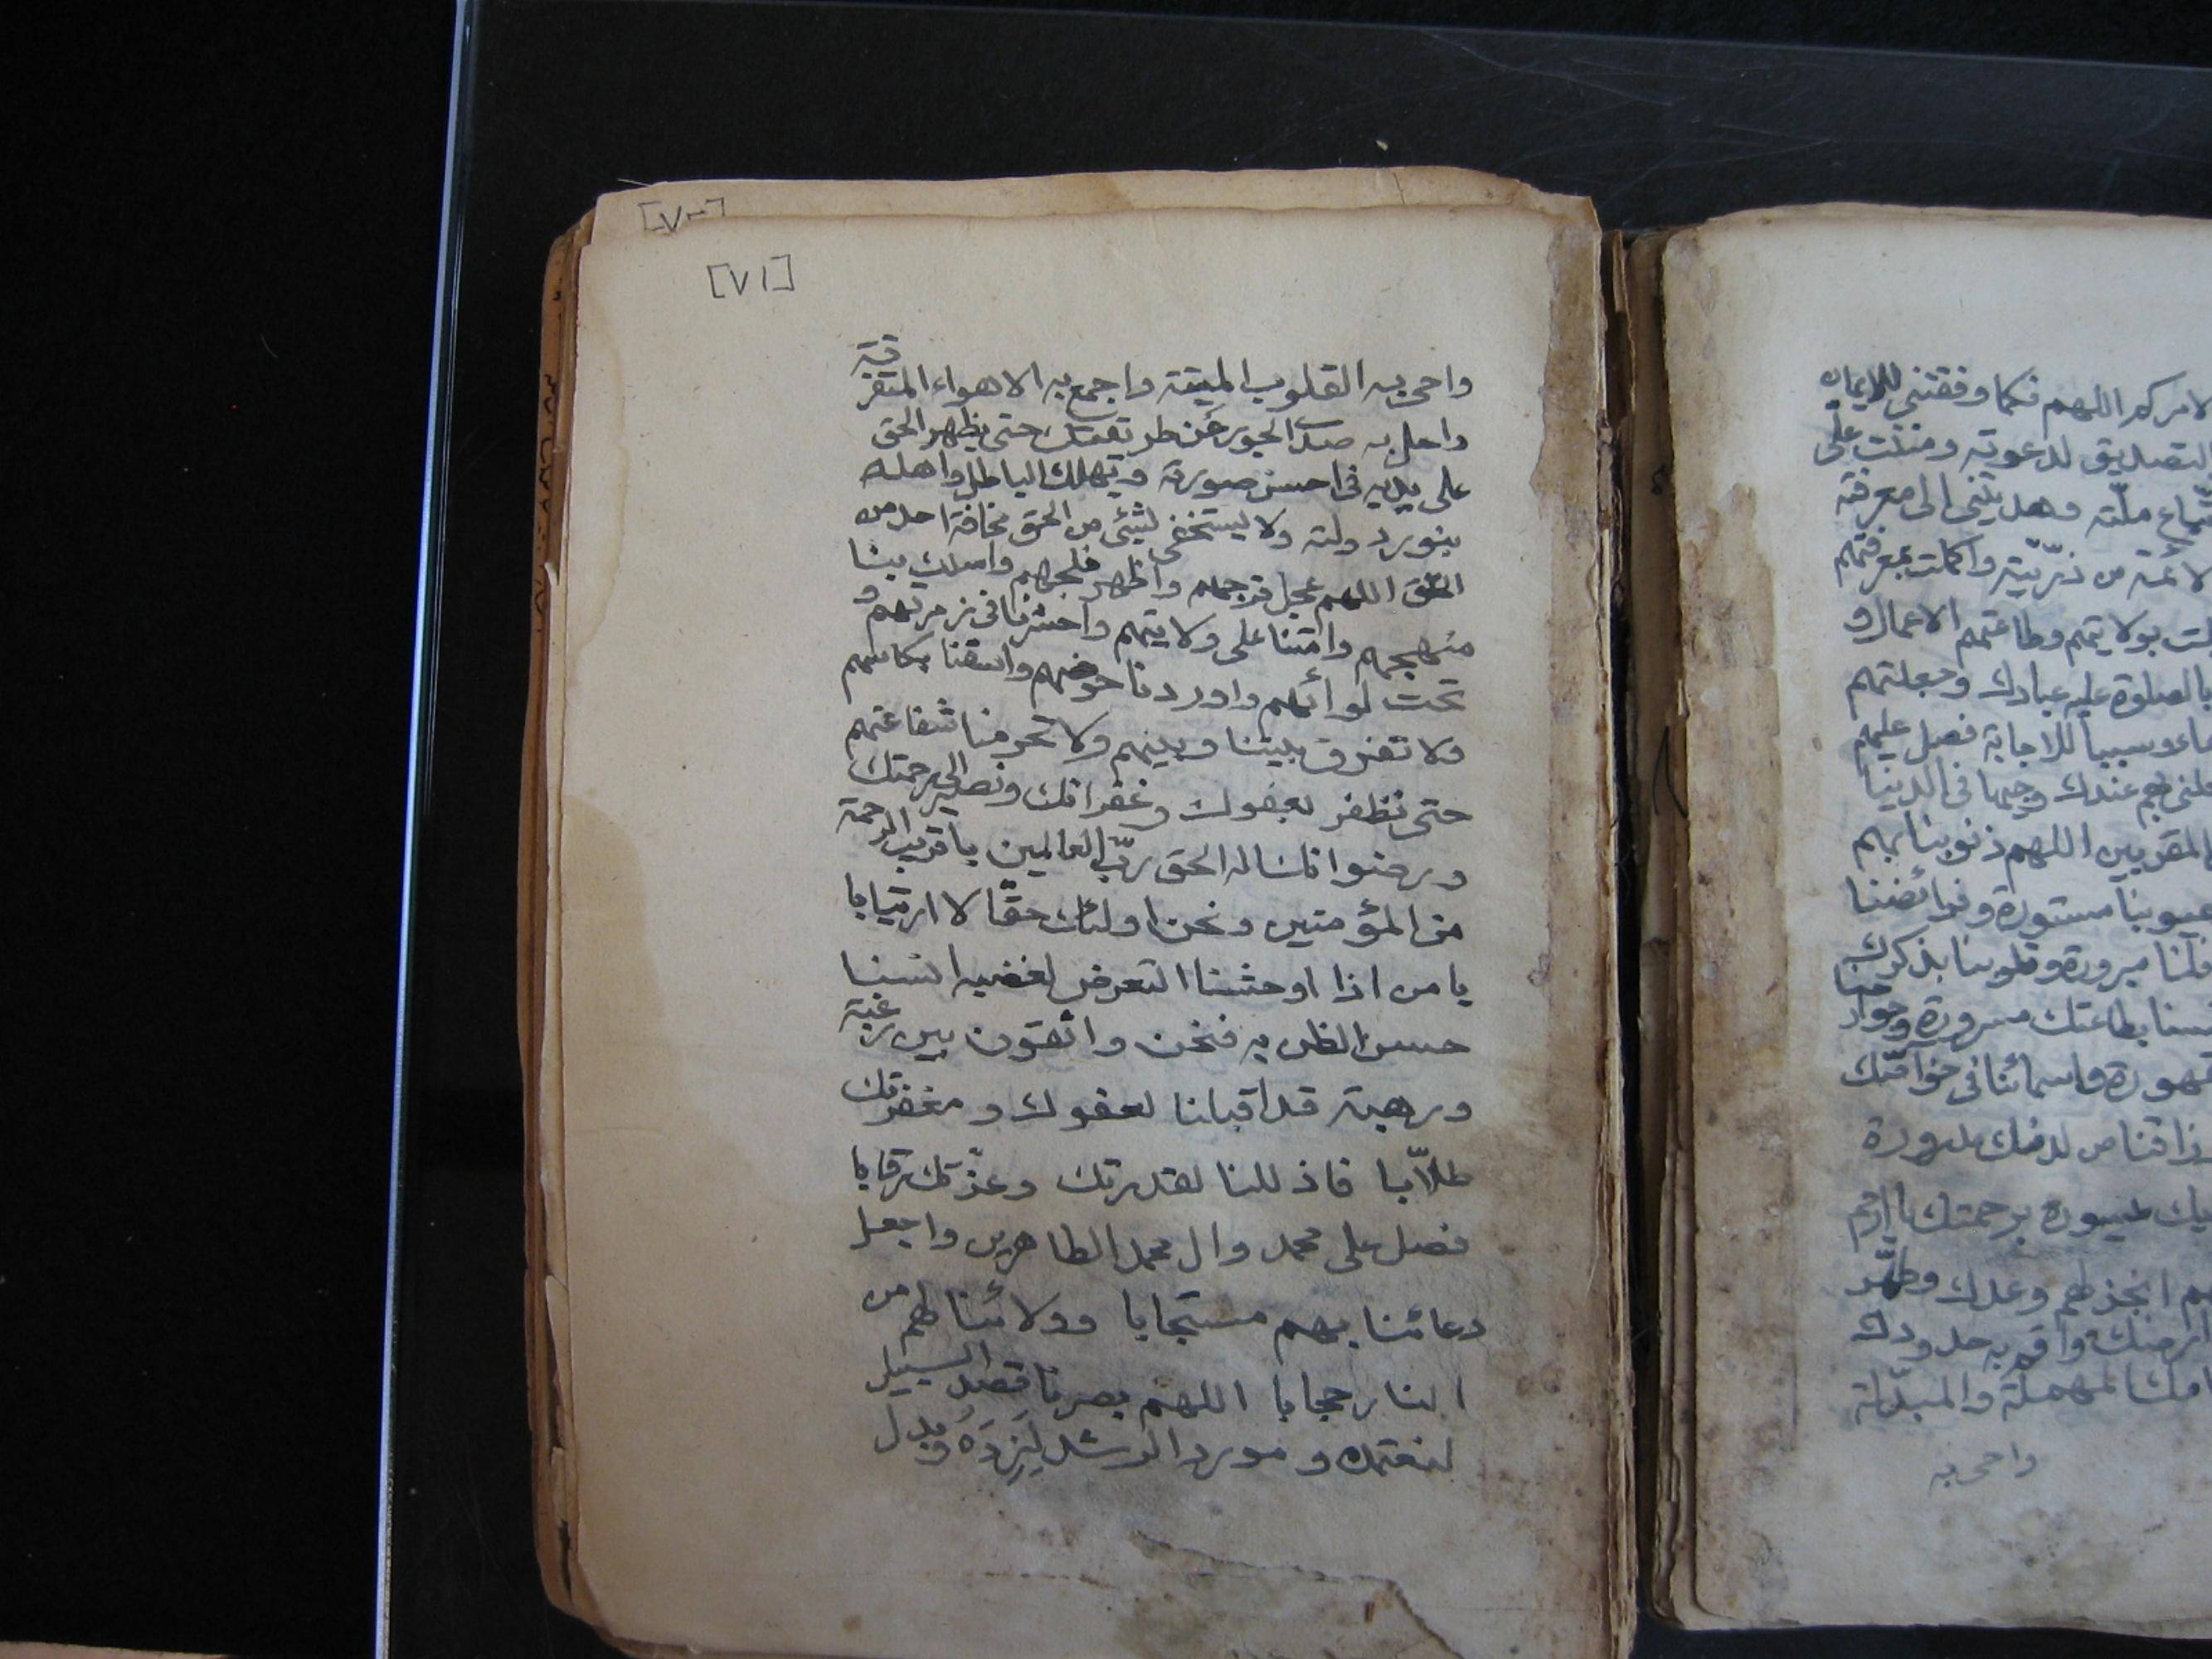 [٧٠]
[٧١]
واحى به القلوب الميتة واجمع به الاهواء المتفرقة
واجل به صدأ الجور عن طريقتك حتى يظهر الحق
على يديه فى احسن صورة ويهلك الباطل واهله
بنور دولته ولا يستخفى لشئ من الحق مخافة احد من
الخلق اللهم عجل فرجهم واظهر فلجهم واسلك بنا
منهجهم وامتنا على ولايتهم واحشرنا فى زمرتهم و
تحت لوائهم واوردنا حوضهم واسقنا بكاسهم
ولا تفرق بيننا وبينهم ولا تحرمنا شفاعتهم
حتى نظفر بعفوك وغفرانك ونصير الى رحمتك
ورضوانك اله الحق ربّ العالمين يا قريب الرحمة
من المؤمنين ونحن اولئك حقّا لا ارتيابا
يا من اذا اوحشنا التعرض لغضبه انسنا
حسن الظن به فنحن واثقون بين رغبة
ورهبة قد اقبلنا لعفوك و مغفرتك
طلاّبا فاذللنا لقدرتك وعزّتك رقابا
فصل على محمد وال محمد الطاهرين واجعل
دعائنا بهم مستجابا وولائنا لهم من
النار حجابا اللهم بصرنا قصد السبيل
لنعتمده و مورد الرشد لِنَرِدَهُ وبدل
لامرك اللهم فكما وفقتنى للايمان
التصديق لدعوته ومننت علّى
تّباع ملّته وهديتنى الى معرفته
لائمة من ذرّيّته واكملت بمعرفتهم
بولايتهم وطاعتهم الاعمال و
بالصلوة عليهم عبادك وجعلتهم
عاء وسببا للاجابة فصل عليهم
علنى بهم عندك وجيها فى الدنيا
المقربين اللهم ذنوبنا بهم
عيوبنا مستورة وفرائضنا
مبرورة وقلوبنا بذكرك
بطاعتك مسرورة وجوارحنا
قهورة واسمائنا فى خواصّك
ارزاقنا من لدنك مدرورة
ميسورة برحمتك يا ارحم
انجز لهم وعدك وطهّر
ارضك واقم به حدودك
المهملة والمبدّلة
واحى به